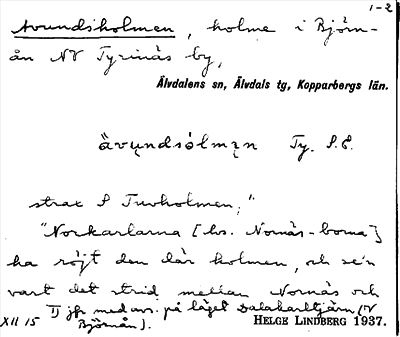 1-2
Avundsholmen, holme i Björn-
ån NV Tyrinäs by,
Älvdalens sn, Älvdals tg, Kopparbergs län.
åvundsólmęn Ty. S.E.
strax S Tuvholmen;"
"Norkarlarna [hs. Nornäs-borna]
ha röjt den där holmen, och se'n
vart det strid mellan Nornäs och
1) jfr med anv. på läget Dalakarltjärn (V
Björnån).
XII 15
HELGE LINDBERG 1937.